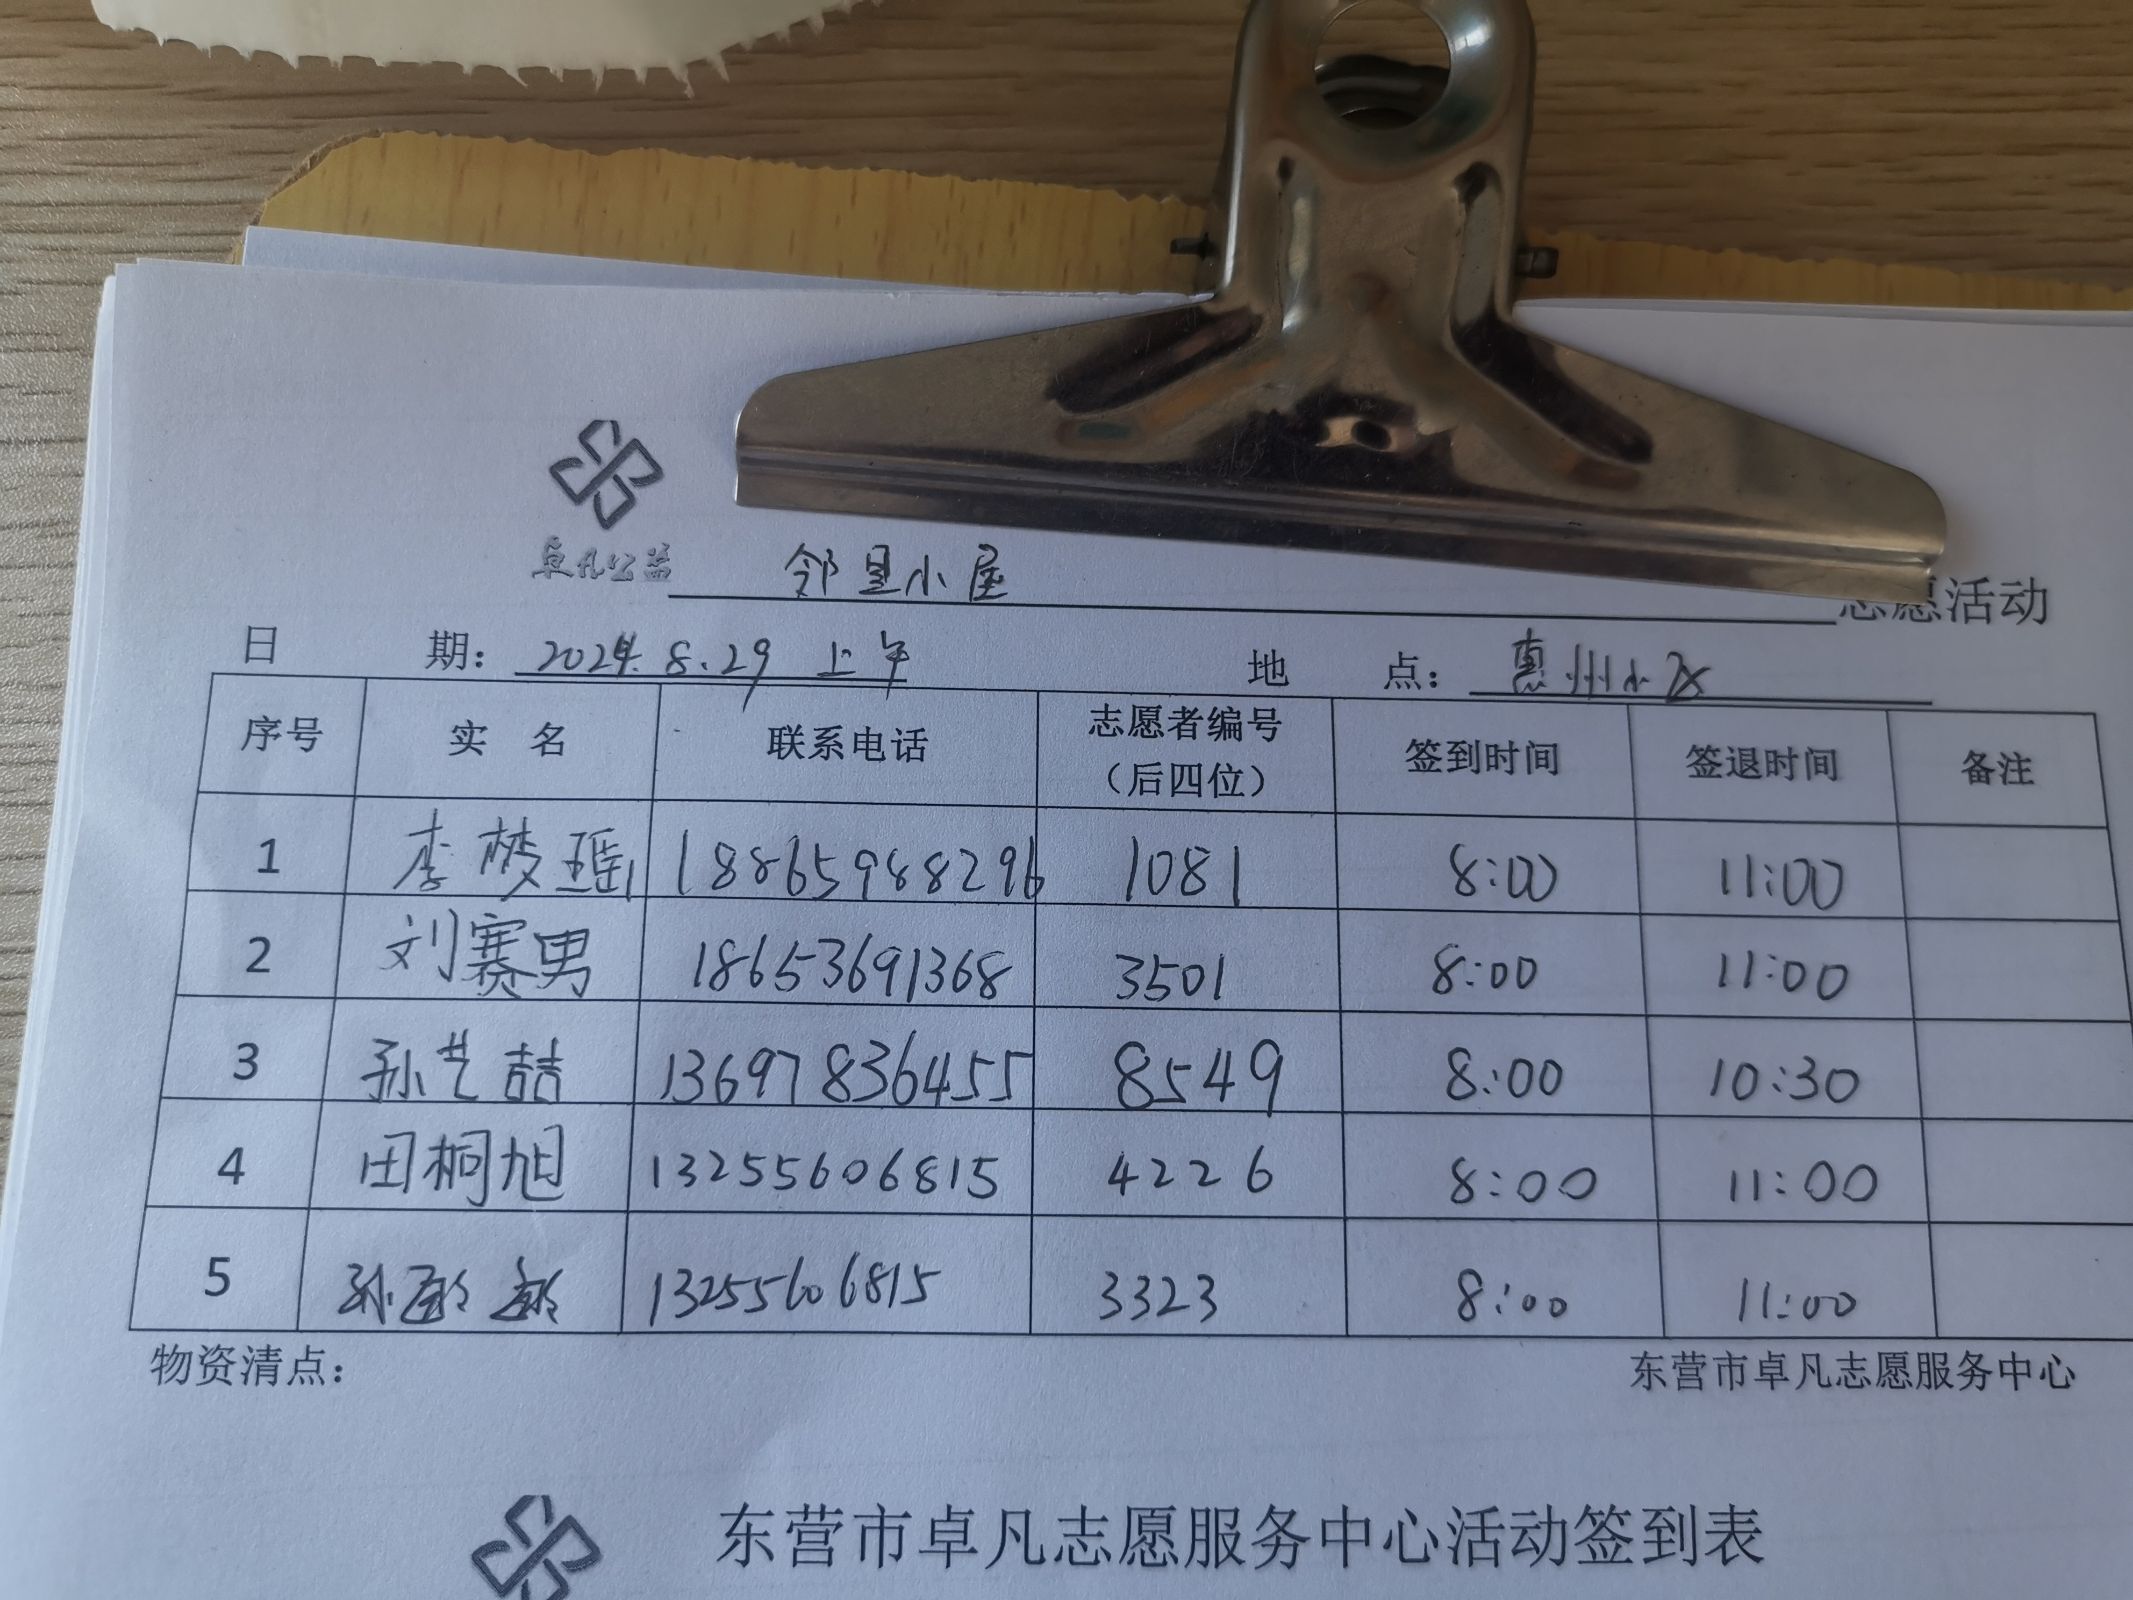 卓凡公益
邻里小屋 志愿活动
日 期：2024.8.29 上午 地 点：惠州小区
序号 实 名 联系电话 志愿者编号（后四位） 签到时间 签退时间 备注
1 李梦瑶 18865988296 1081 8:00 11:00
2 刘赛男 18653691368 3501 8:00 11:00
3 孙艺喆 13697836455 8549 8:00 10:30
4 田桐旭 13255606815 4226 8:00 11:00
5 孙 13255606815 3323 8:00 11:00
物资清点： 东营市卓凡志愿服务中心
东营市卓凡志愿服务中心活动签到表